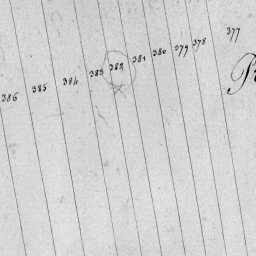 386 385 384 383 382 381 380 379 378 377